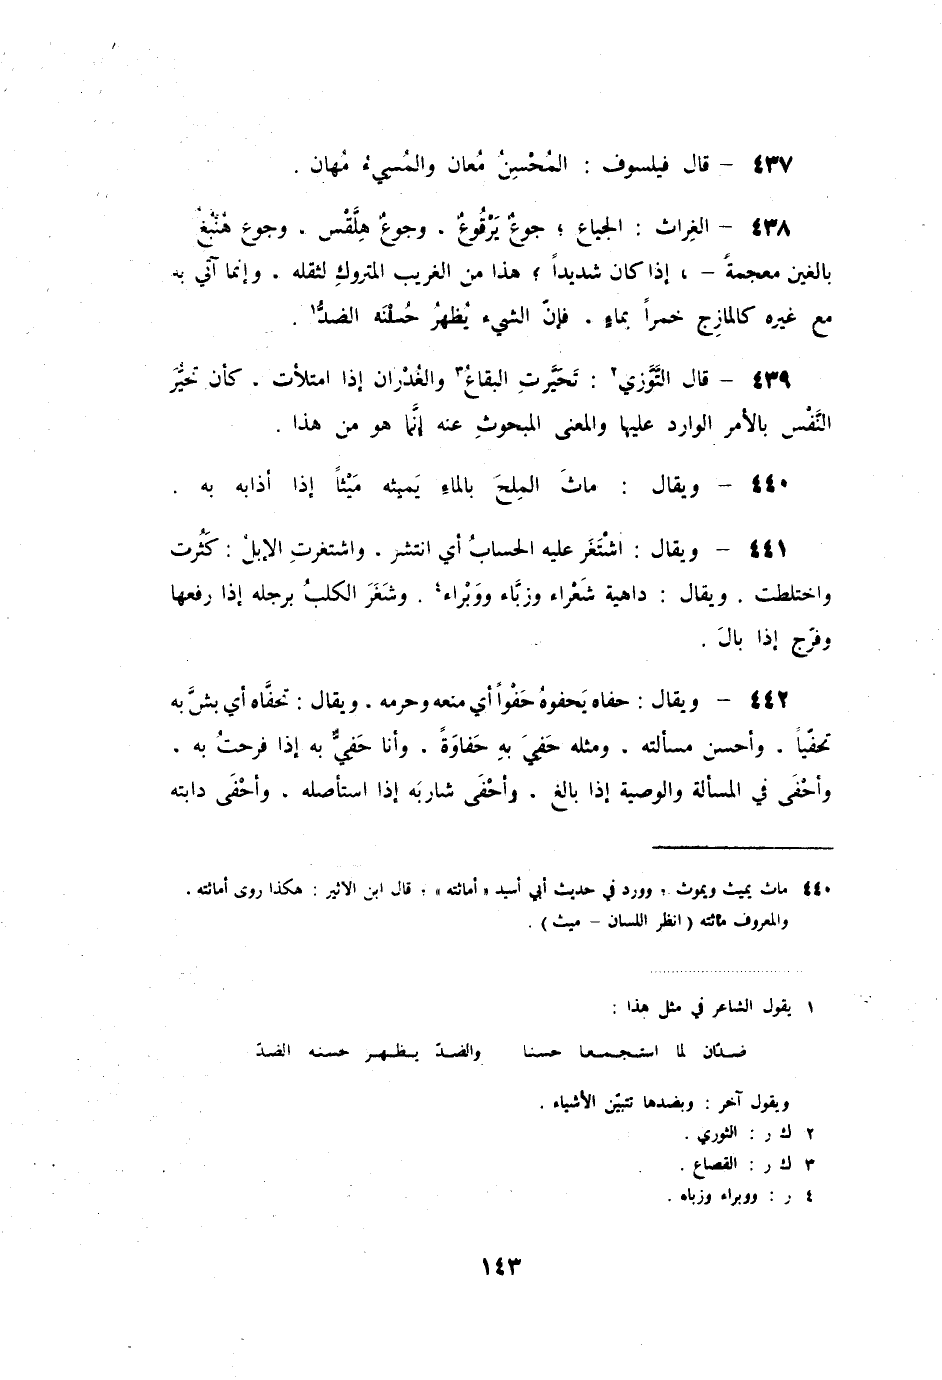 ٤٣٧ – قال فيلسوف : المُحْسِنُ مُعان والمُسِيءُ مُهان .
٤٣٨ – الغِراث : الجياع ؛ جوعٌ يَرْقُوعٌ . وجوعٌ هِلَّقْس . وجوع هُنْبُغٌ
بالغين معجمةً – ، إذا كان شديداً ؛ هذا من الغريب المتروكِ لثقله . وإنما آتي به
مع غيره كالمازِج خمراً بماءٍ . فإنّ الشيء يُظهرُ حُسْنَه الضدُّ١ .
٤٣٩ – قال التَّوَّزي٢ : تَحَيَّرتِ البقاعُ٣ والغُدْران إذا امتلأت . كأن تحيُّرَ
النَّفْس بالأمر الوارد عليها والمعنى المبحوثِ عنه إنَّما هو من هذا .
٤٤٠ – ويقال : ماثَ المِلحَ بالماءِ يَميثه مَيْثاً إذا أذابه به .
٤٤١ – ويقال : اشْتَغَر عليه الحسابُ أي انتشر . واشتغرتِ الإبلُ : كَثُرت
واختلطت . ويقال : داهية شَعْراء وزبَّاء ووَبْراء٤ . وشَغَرَ الكلبُ برجله إذا رفعها
وفرّج إذا بالَ .
٤٤٢ – ويقال : حفاه يَحفوهُ حَفْواً أي منعه وحرمه . ويقال : تحفَّاه أي بشَّ به
تحفّياً . وأحسن مسألته . ومثله حَفِيَ بهِ حَفاوَةً . وأنا حَفِيٌّ به إذا فرحتُ به .
وأحْفَى في المسألة والوصية إذا بالغ . وأحْفَى شاربَه إذا استأصله . وأحْفَى دابته
٤٤٠ ماث يميث ويموث ، وورد في حديث أبي أسيد « أماثته » ، قال ابن الاثير : هكذا روى أماثته .
والمعروف ماثته ( انظر اللسان – ميث ) .
١ يقول الشاعر في مثل هذا :
ضدّان لما استجمعا حسنا والضدّ يظهر حسنه الضدّ
ويقول آخر : وبضدها تتبيّن الأشياء .
٢ ك ر : الثوري .
٣ ك ر : القصاع .
٤ ر : ووبراء وزباه .
١٤٣